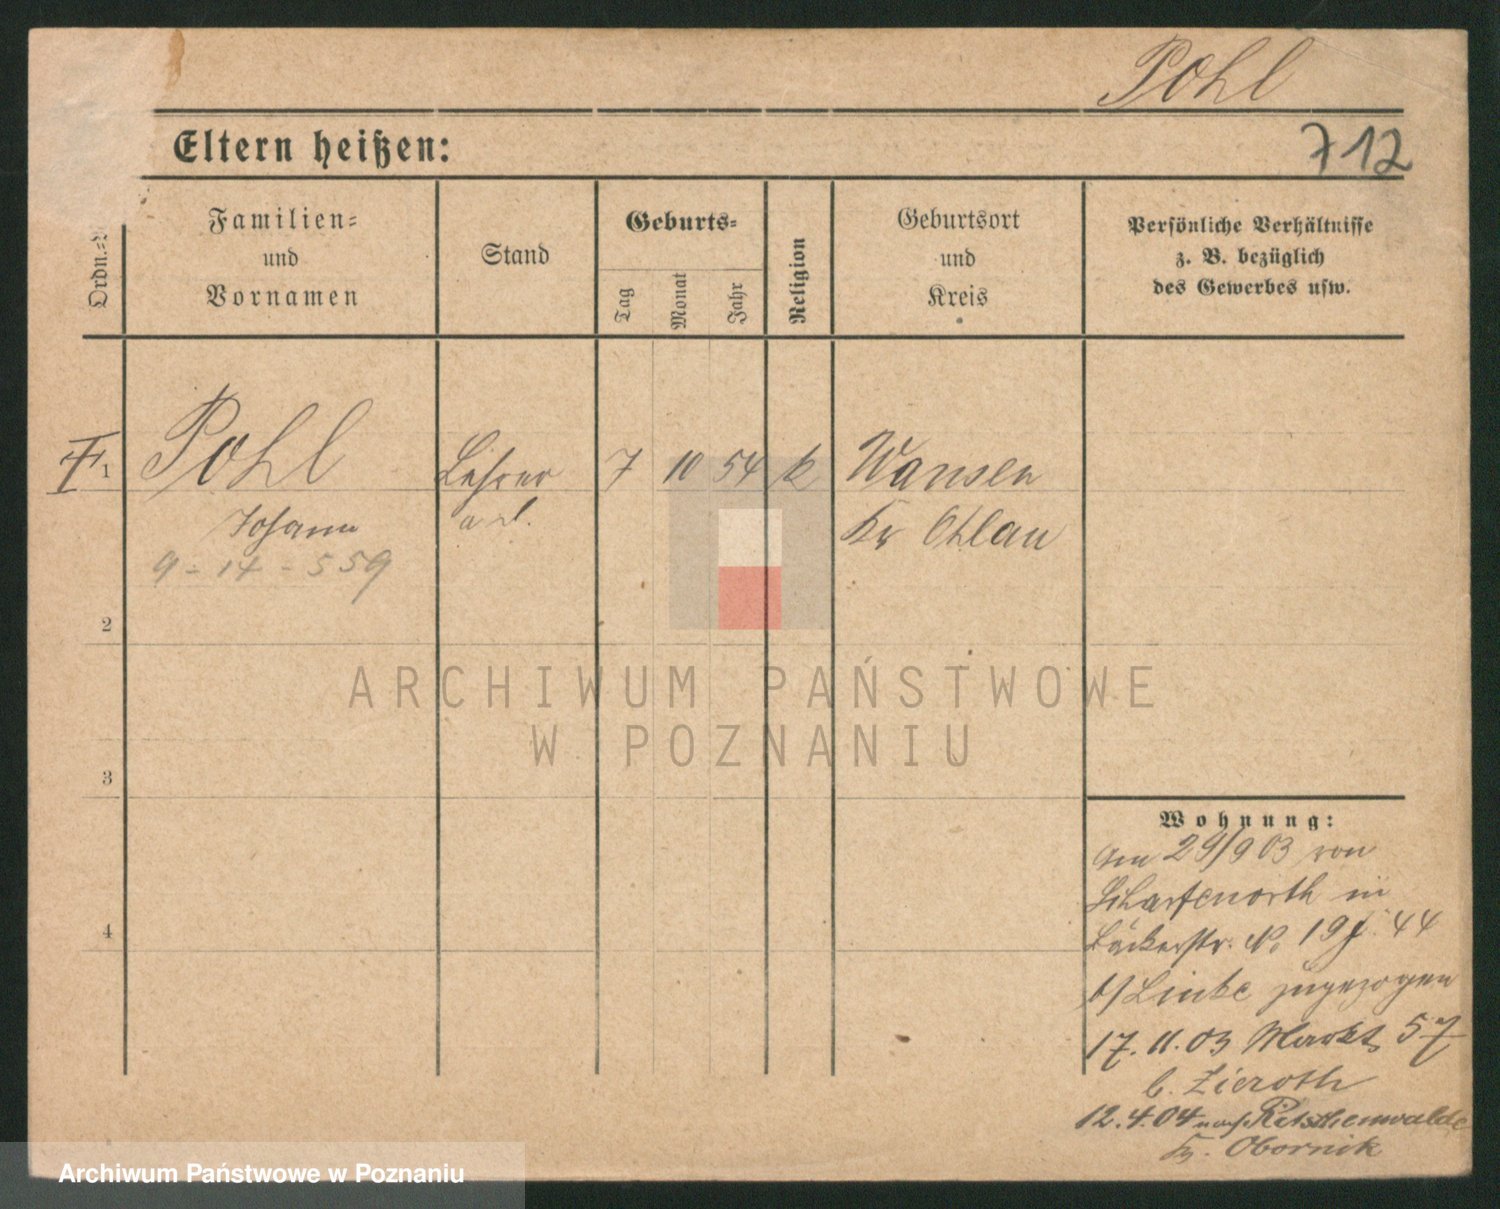 Pohl
Eltern heißen:
712
Ordn.-
Familien-
und
Vornamen
Stand
Geburts-
Tag
Monat
Jahr
Religion
Geburtsort
und
Kreis
Persönliche Verhältnisse
z. B. bezüglich
des Gewerbes usw.
1
Pohl
Lehrer
7
10
54
k
Wansen
Johann
a. D.
Kr Ohlau
9 - 14 - 559
2
3
4
Wohnung:
Am 29/9 03 von
Scharfenorth in
Bäckerstr. No 19 44
b/ Linke zugezogen
17. 11. 03 Markt 57
b. Zieroth
12. 4. 04 nach Ritschenwalde
Kr. Obornik
ARCHIWUM PAŃSTWOWE
W POZNANIU
Archiwum Państwowe w Poznaniu